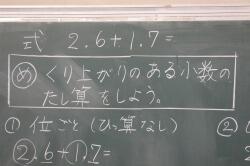 式 2.6+1.7=
め くり上がりのある小数の
たし算をしよう。
① 位ごと(ひっ算なし)
②
2.6+1.7=